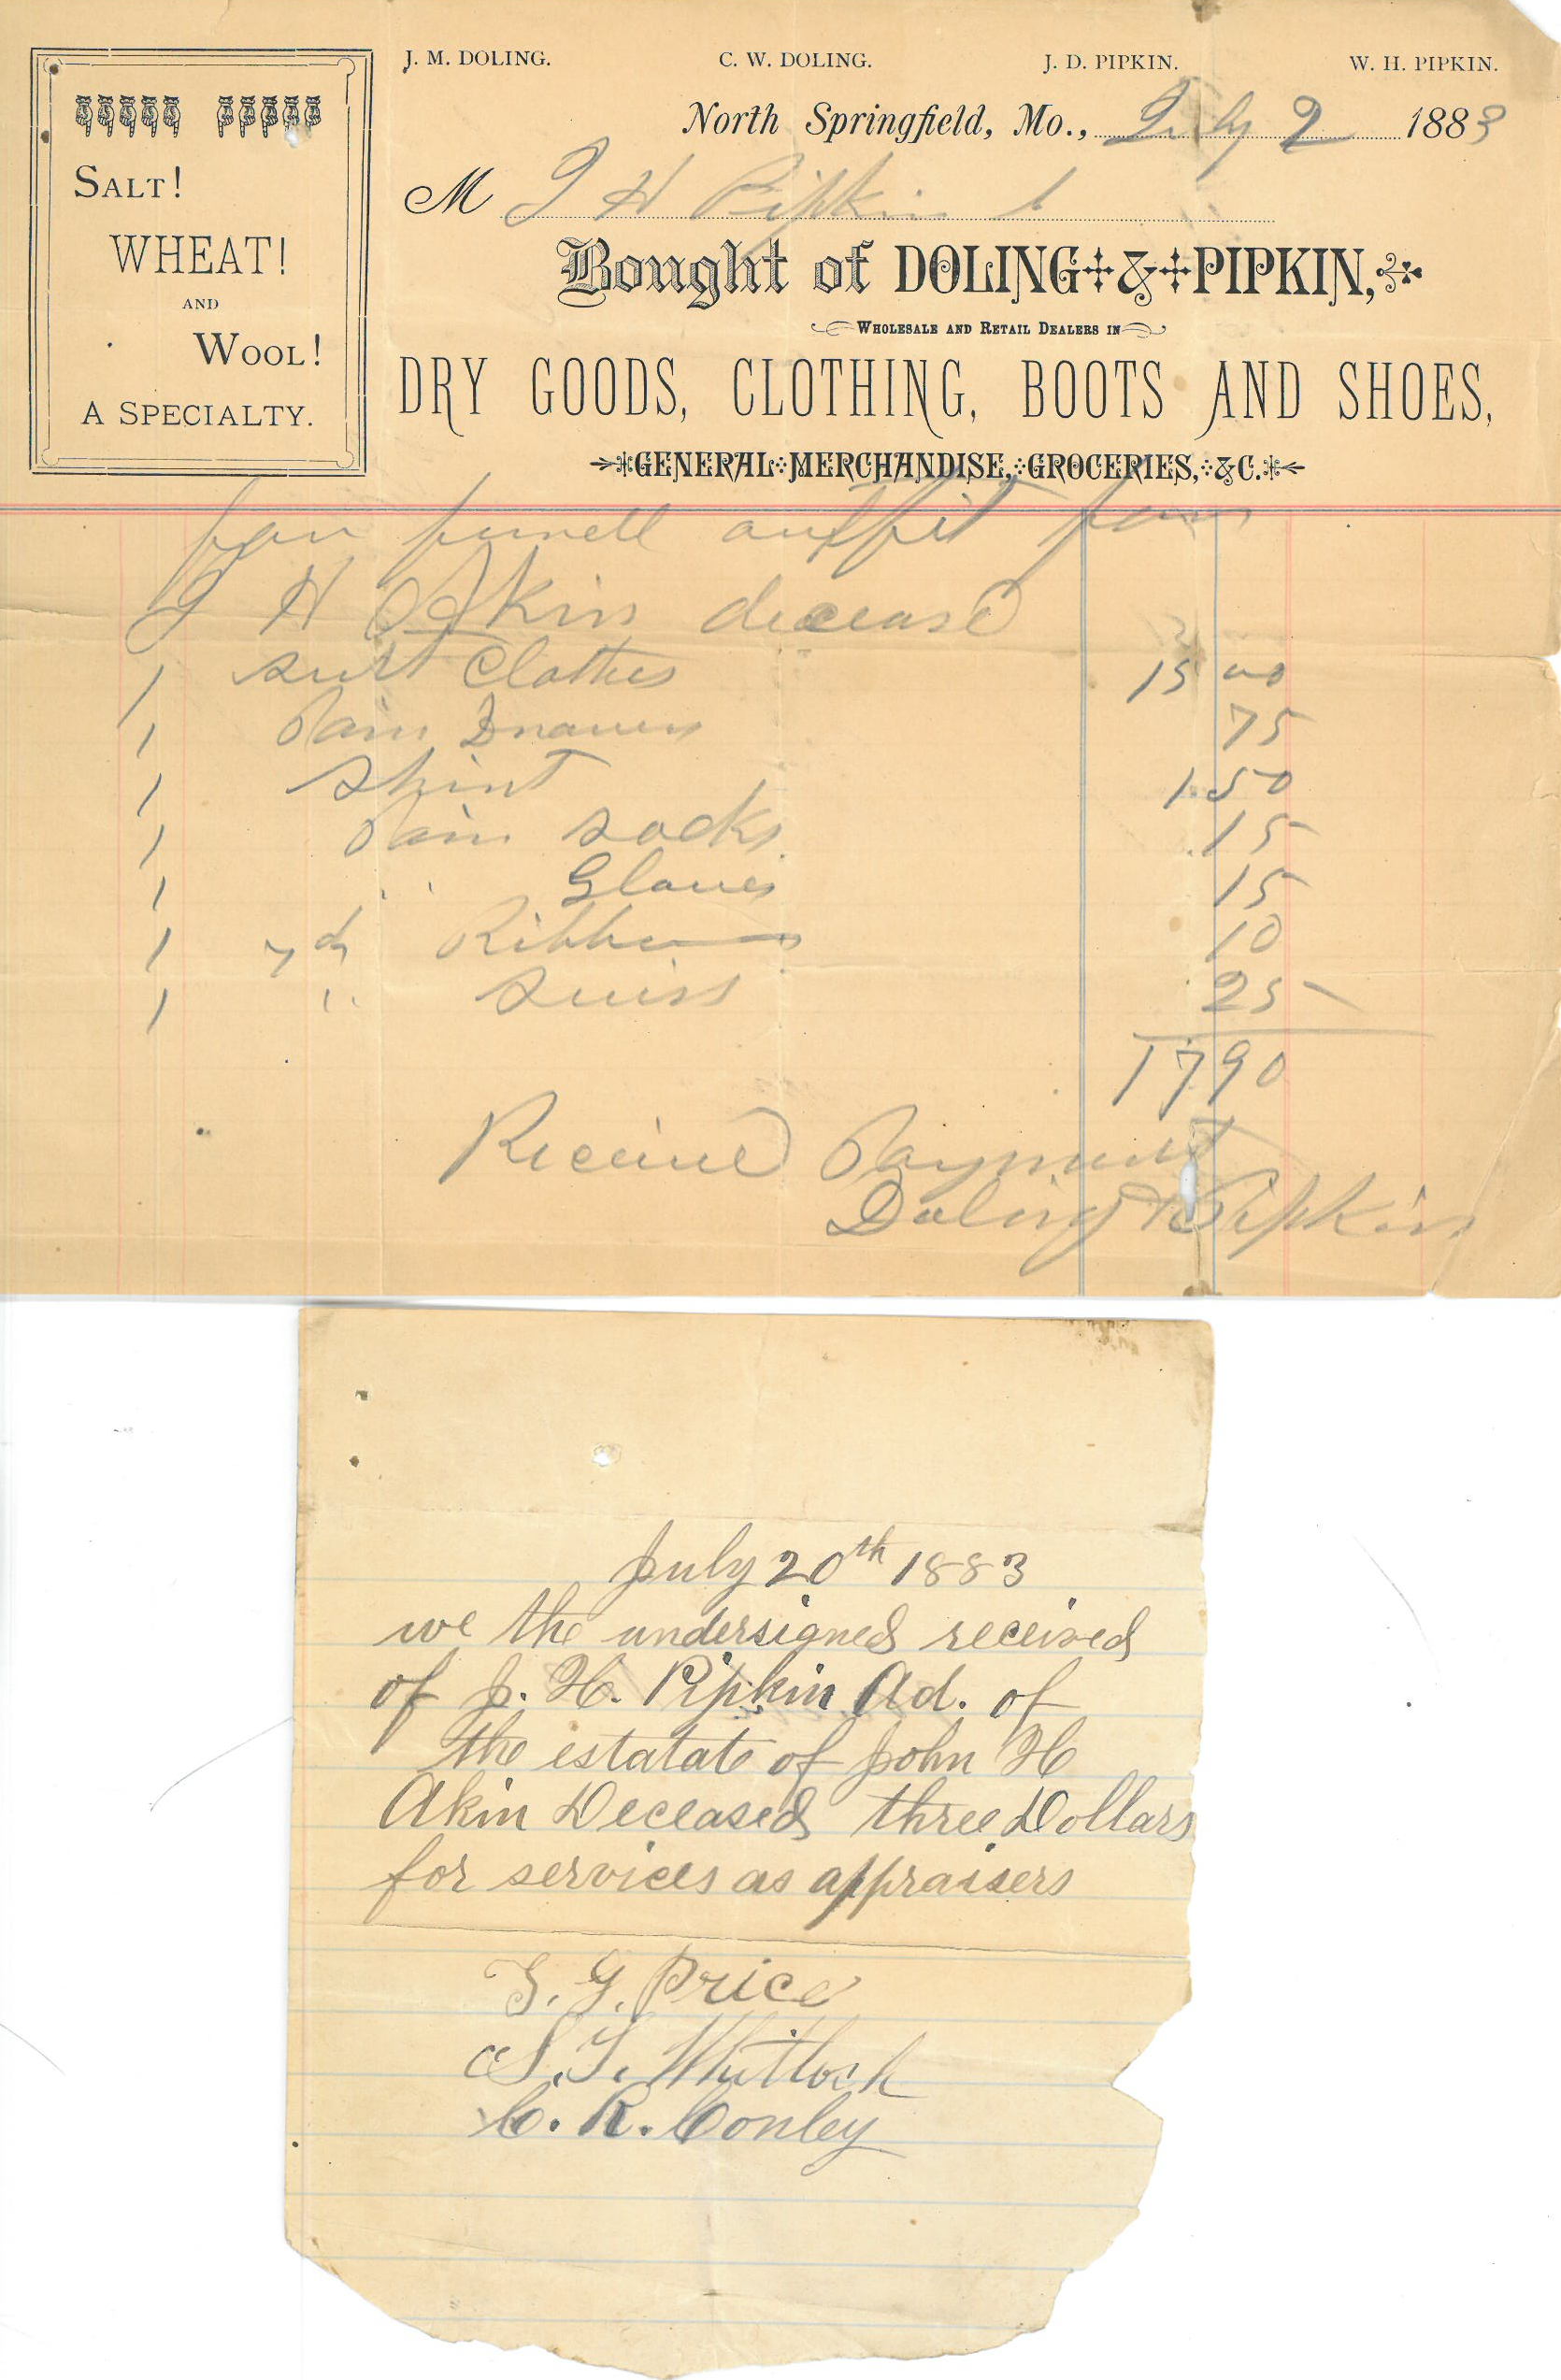 J. M. DOLING. C. W. DOLING. J. D. PIPKIN. W. H. PIPKIN.
SALT!
WHEAT!
AND
WOOL!
A SPECIALTY.
North Springfield, Mo., July 2 1883
M J H Pipkin
Bought of DOLING & PIPKIN,
WHOLESALE AND RETAIL DEALERS IN
DRY GOODS, CLOTHING, BOOTS AND SHOES,
GENERAL MERCHANDISE, GROCERIES, &C.
for funell outfit for
J H Akin decease
1 suit Clothes 15 00
1 Pair Drawers 75
1 Shirt 1.50
1 Pair socks 15
1 " Gloves 15
1 yd Ribbon 10
1 " Swiss 25
17 90
Received Payment
Doling & Pipkin
July 20th 1883
we the undersigned received
of J. H. Pipkin Ad. of
the estatate of John H
Akin Deceased three Dollars
for services as appraisers
G. Price
S. T. Whitlock
C. R. Conley